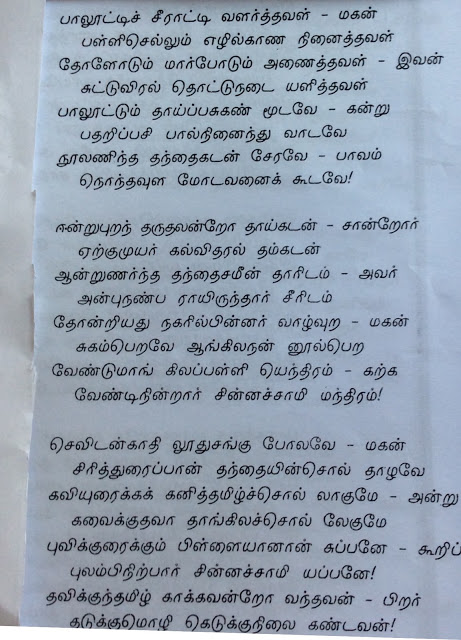 பாலூட்டிச் சீராட்டி வளர்த்தவள் – மகன்
பள்ளிசெல்லும் எழில்காண நினைத்தவள்
தோளோடும் மார்போடும் அணைத்தவள் – இவன்
சுட்டுவிரல் தொட்டுநடை யளித்தவள்
பாலூட்டும் தாய்ப்பசுகண் மூடவே – கன்று
பதறிப்பசி பால்நினைந்து வாடவே
நூலணிந்த தந்தைகடன் சேரவே – பாவம்
நொந்தவுள மோடவனைக் கூடவே!
ஈன்றுபுறந் தருதலன்றோ தாய்கடன் – சான்றோர்
ஏற்குமுயர் கல்விதரல் தம்கடன்
ஆன்றுணர்ந்த தந்தைசமீன் தாரிடம் – அவர்
அன்புநண்ப ராயிருந்தார் சீரிடம்
தோன்றியது நகரில்பின்னர் வாழ்வுற – மகன்
சுகம்பெறவே ஆங்கிலநன் னூல்பெற
வேண்டுமாங் கிலப்பள்ளி யெந்திரம் – கற்க
வேண்டிநின்றார் சின்னச்சாமி மந்திரம்!
செவிடன்காதி லூதுசங்கு போலவே – மகன்
சிரித்துரைப்பான் தந்தையின்சொல் தாழவே
கவியுரைக்கக் கனித்தமிழ்ச்சொல் லாகுமே – அன்று
கவைக்குதவா தாங்கிலச்சொல் லேகுமே
புவிக்குரைக்கும் பிள்ளையானான் சுப்பனே – கூறிப்
புலம்பிநிற்பார் சின்னச்சாமி யப்பனே!
தவிக்குந்தமிழ் காக்கவன்றோ வந்தவன் – பிறர்
கடுக்குமொழி கெடுக்குநிலை கண்டவன்!